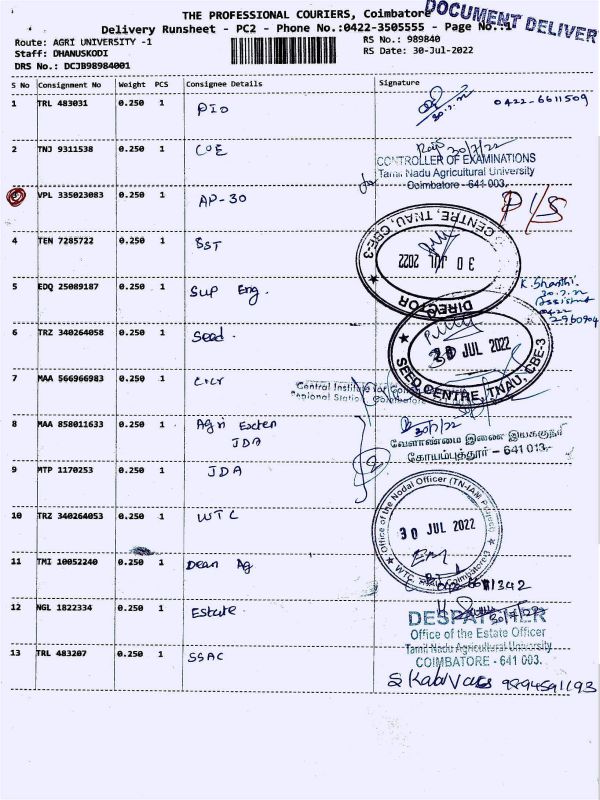 THE PROFESSIONAL COURIERS, Coimbatore
DOCUMENT DELIVER
Delivery Runsheet - PC2 - Phone No.:0422-3505555 - Page No.:1
Route: AGRI UNIVERSITY -1
RS No.: 989840
Staff: DHANUSKODI
RS Date: 30-Jul-2022
DRS No.: DCJB98984001
S No Consignment No Weight PCS Consignee Details Signature
1 TRL 483031 0.250 1 PIO 30.7.22 0422-6611509
2 TNJ 9311538 0.250 1 COE 30/7/22
CONTROLLER OF EXAMINATIONS
Tamil Nadu Agricultural University
Coimbatore - 641 003.
3 VPL 335023083 0.250 1 AP-30
CENTRE, TNAU, CBE-3
30 JUL 2022
DIRECTOR
4 TEN 7285722 0.250 1 SST
5 EDQ 25089187 0.250 1 Sup Eng.
K. Shanthi
30.7.22
Assistant
0422
2960904
6 TRZ 340264058 0.250 1 Seed.
30 JUL 2022
SEED CENTRE, TNAU, CBE-3
7 MAA 566966983 0.250 1
Central Institute for
Regional Station Coimbatore
8 MAA 858011633 0.250 1 Agri Exten
JDA
30/7/22
வேளாண்மை இணை இயக்குநர்
கோயம்புத்தூர் - 641 013.
9 MTP 1170253 0.250 1 JDA
10 TRZ 340264053 0.250 1 WTC
Office of the Nodal Officer (TN-IAM Project)
30 JUL 2022
WTC, Coimbatore-3
11 TMI 10052240 0.250 1 Dean Ag
12 NGL 1822334 0.250 1 Estate.
DESPATCHER
Office of the Estate Officer
Tamil Nadu Agricultural University
COIMBATORE - 641 003.
13 TRL 483207 0.250 1 SSAC
9894591193